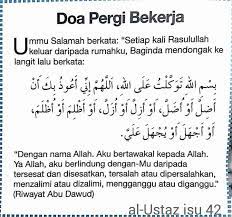 Doa Pergi Bekerja
Ummu Salamah berkata: "Setiap kali Rasulullah
keluar daripada rumahku, Baginda mendongak ke
langit lalu berkata:
بِسْمِ اللهِ تَوَكَّلْتُ عَلَى اللهِ، اَللَّهُمَّ إِنِّي أَعُوذُ بِكَ أَنْ
أَضِلَّ أَوْ أُضَلَّ، أَوْ أَزِلَّ أَوْ أُزَلَّ، أَوْ أَظْلِمَ أَوْ أُظْلَمَ،
أَوْ أَجْهَلَ أَوْ يُجْهَلَ عَلَيَّ.
"Dengan nama Allah. Aku bertawakal kepada Allah.
Ya Allah, aku berlindung dengan-Mu daripada
tersesat dan disesatkan, tersalah atau dipersalahkan,
menzalimi atau dizalimi, mengganggu atau diganggu."
(Riwayat Abu Dawud)
al-Ustaz isu 42